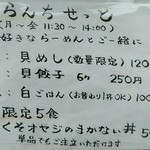 らんちせっと
(月〜金 11:30〜14:00)
好きならーめんとご一緒に
: 貝めし(数量限定) 120
: 貝餃子 6ヶ 250円
: 白ごはん(お替わり丼OK) 100
限定5食
くそオヤジのまかない丼 5
単品でもご注文いただけます